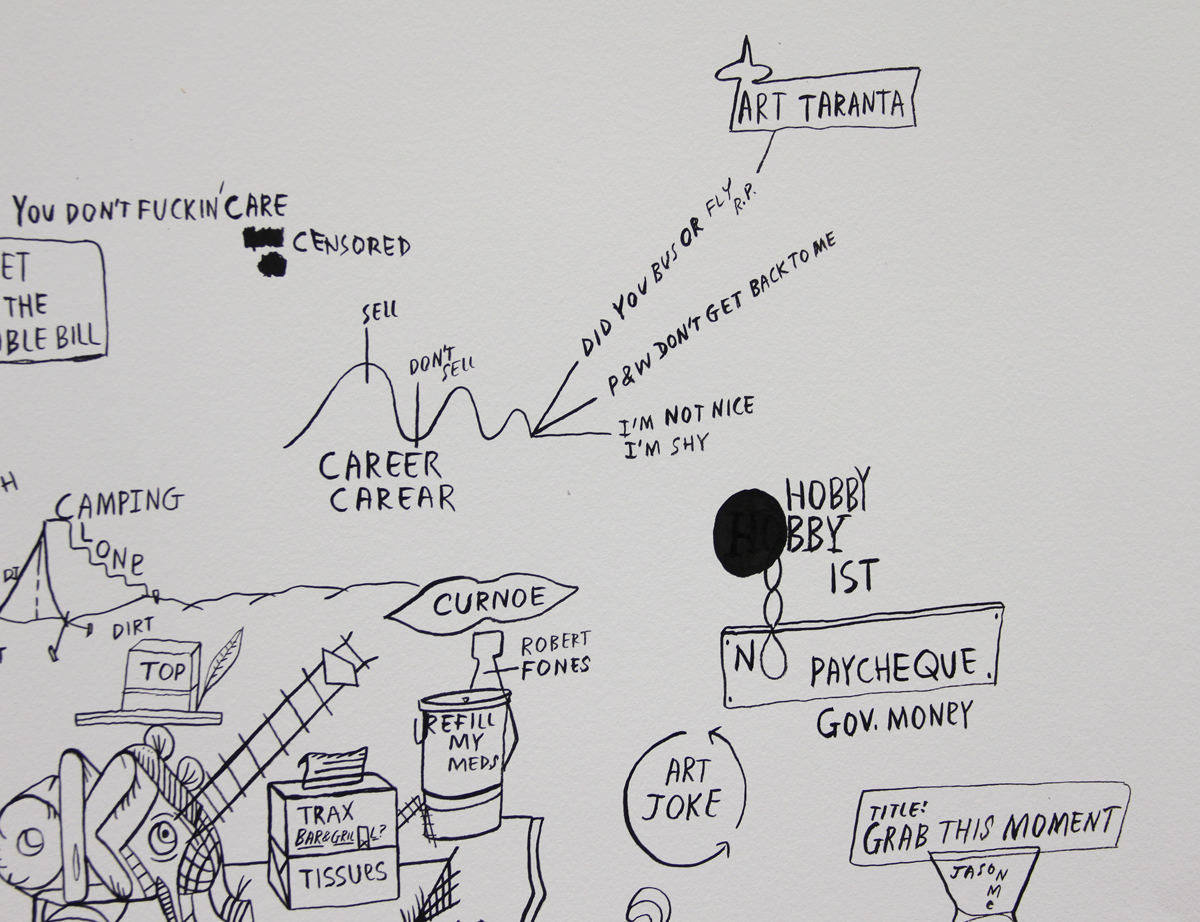 ART TARANTA
YOU DON'T FUCKIN' CARE
CENSORED
ET
THE
BLE BILL
SELL
DON'T
SELL
DID YOU BUS OR FLY
R.P.
P&W DON'T GET BACK TO ME
I'M NOT NICE
I'M SHY
CAREER
CAREAR
H
CAMPING
LONE
DIRT
HOBBY
HOBBY
IST
CURNOE
ROBERT
FONES
TOP
NO PAYCHEQUE
GOV. MONEY
REFILL
MY
MEDS
ART
JOKE
TRAX
BAR&GRILL?
TISSUES
TITLE!
GRAB THIS MOMENT
JASON
Mc
OK